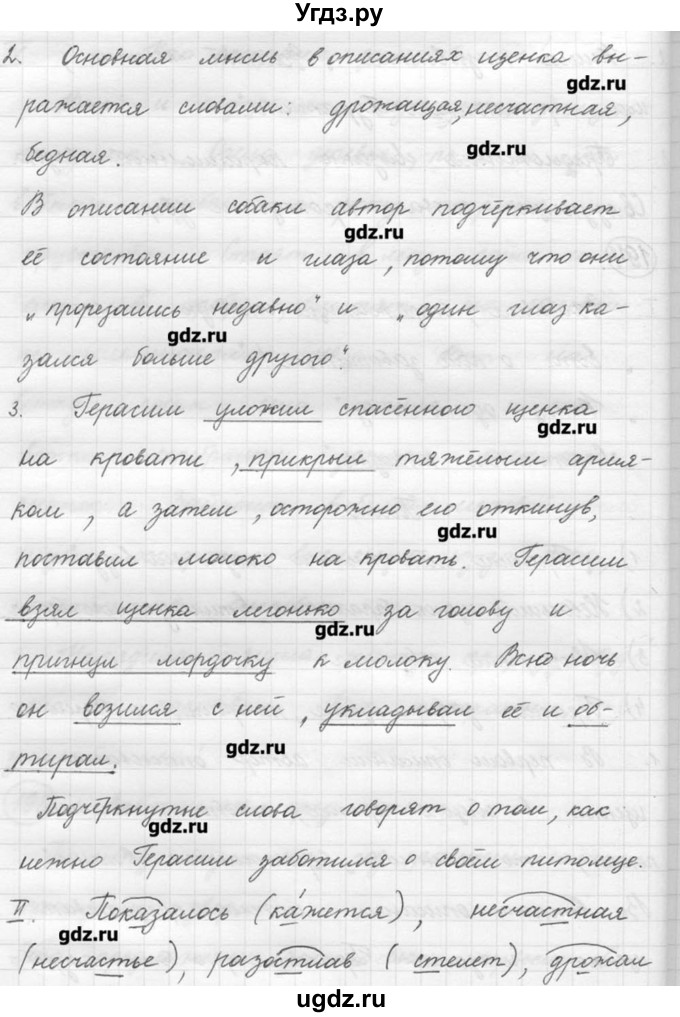 Угдз.ру
2. Основная мысль в описаниях щенка вы-
gdz.ru
ражается словами: дрожащая, несчастная,
gdz.ru
бедная.
В описании собаки автор подчёркивает
gdz.ru
её состояние и глаза, потому что они
„прорезались недавно“ и „один глаз ка-
gdz.ru
зался больше другого“.
3. Герасим уложил спасённого щенка
gdz.ru
на кровати, прикрыл тяжёлым армя-
ком, а затем, осторожно его откинув,
gdz.ru
поставил молоко на кровать. Герасим
взял щенка легонько за голову и
gdz.ru
пригнул мордочку к молоку. Всю ночь
он возился с ней, укладывал её и об-
gdz.ru
тирал.
Подчёркнутые слова говорят о том, как
gdz.ru
нежно Герасим заботился о своём питомце.
II. Показалось (кажется), несчастная
gdz.ru
(несчастье), разостлав (стелет), дрожал
gdz.ru
ugdz.ru